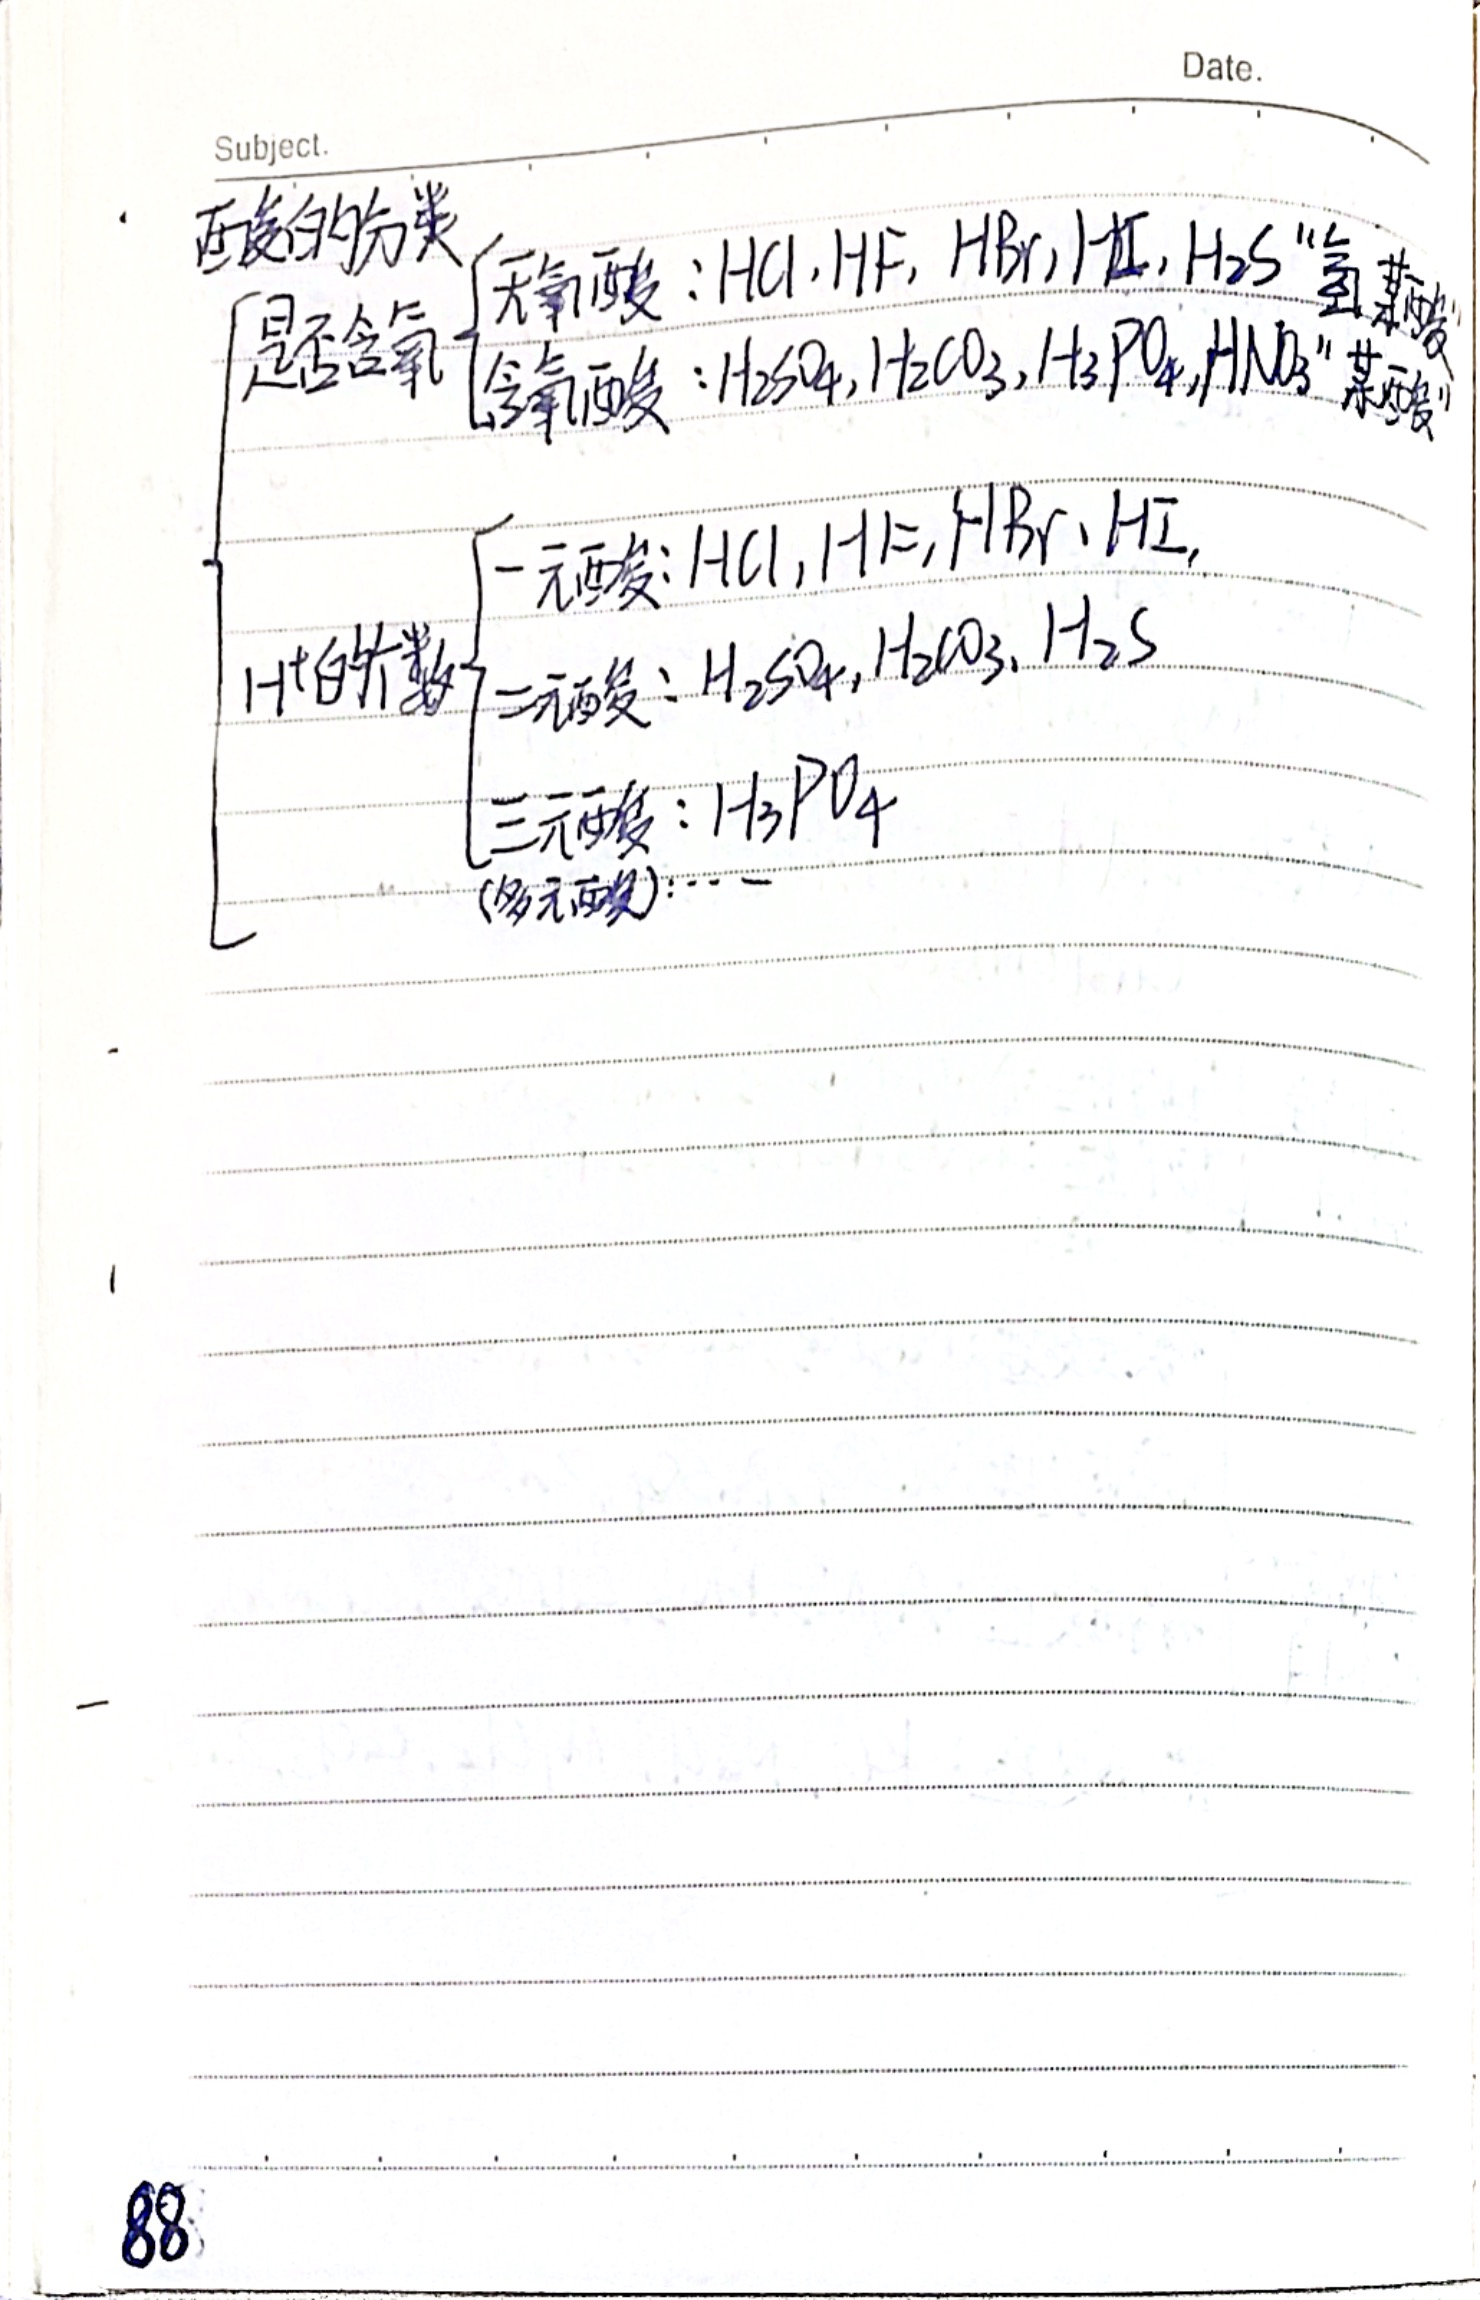 Date.
Subject.
酸的分类
是否含氧
无氧酸：HCl, HF, HBr, HI, H₂S "氢某酸"
含氧酸：H₂SO₄, H₂CO₃, H₃PO₄, HNO₃ "某酸"
H⁺的个数
一元酸：HCl, HF, HBr、HI,
二元酸：H₂SO₄, H₂CO₃、H₂S
三元酸：H₃PO₄
(多元酸)：---
88